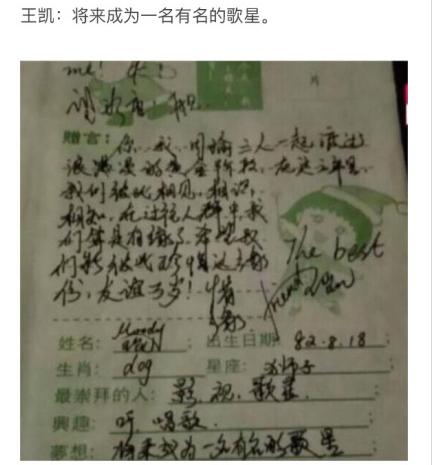 王凯：将来成为一名有名的歌星。
me!
片
赠言：你、我、周瑜三人一起度过
浪漫的黄金阶段，在这三年里，
我们彼此相见，相识，
相知，在过往人群中我
们算是有缘了。希望我
们能彼此珍惜这三
份，友谊万岁！
The best
friend
姓名：
出生日期：82.8.18；
生肖：dog
星座：狮子
最崇拜的人：影、视、歌星；
興趣：听、唱歌；
夢想：将来成为一名有名的歌星